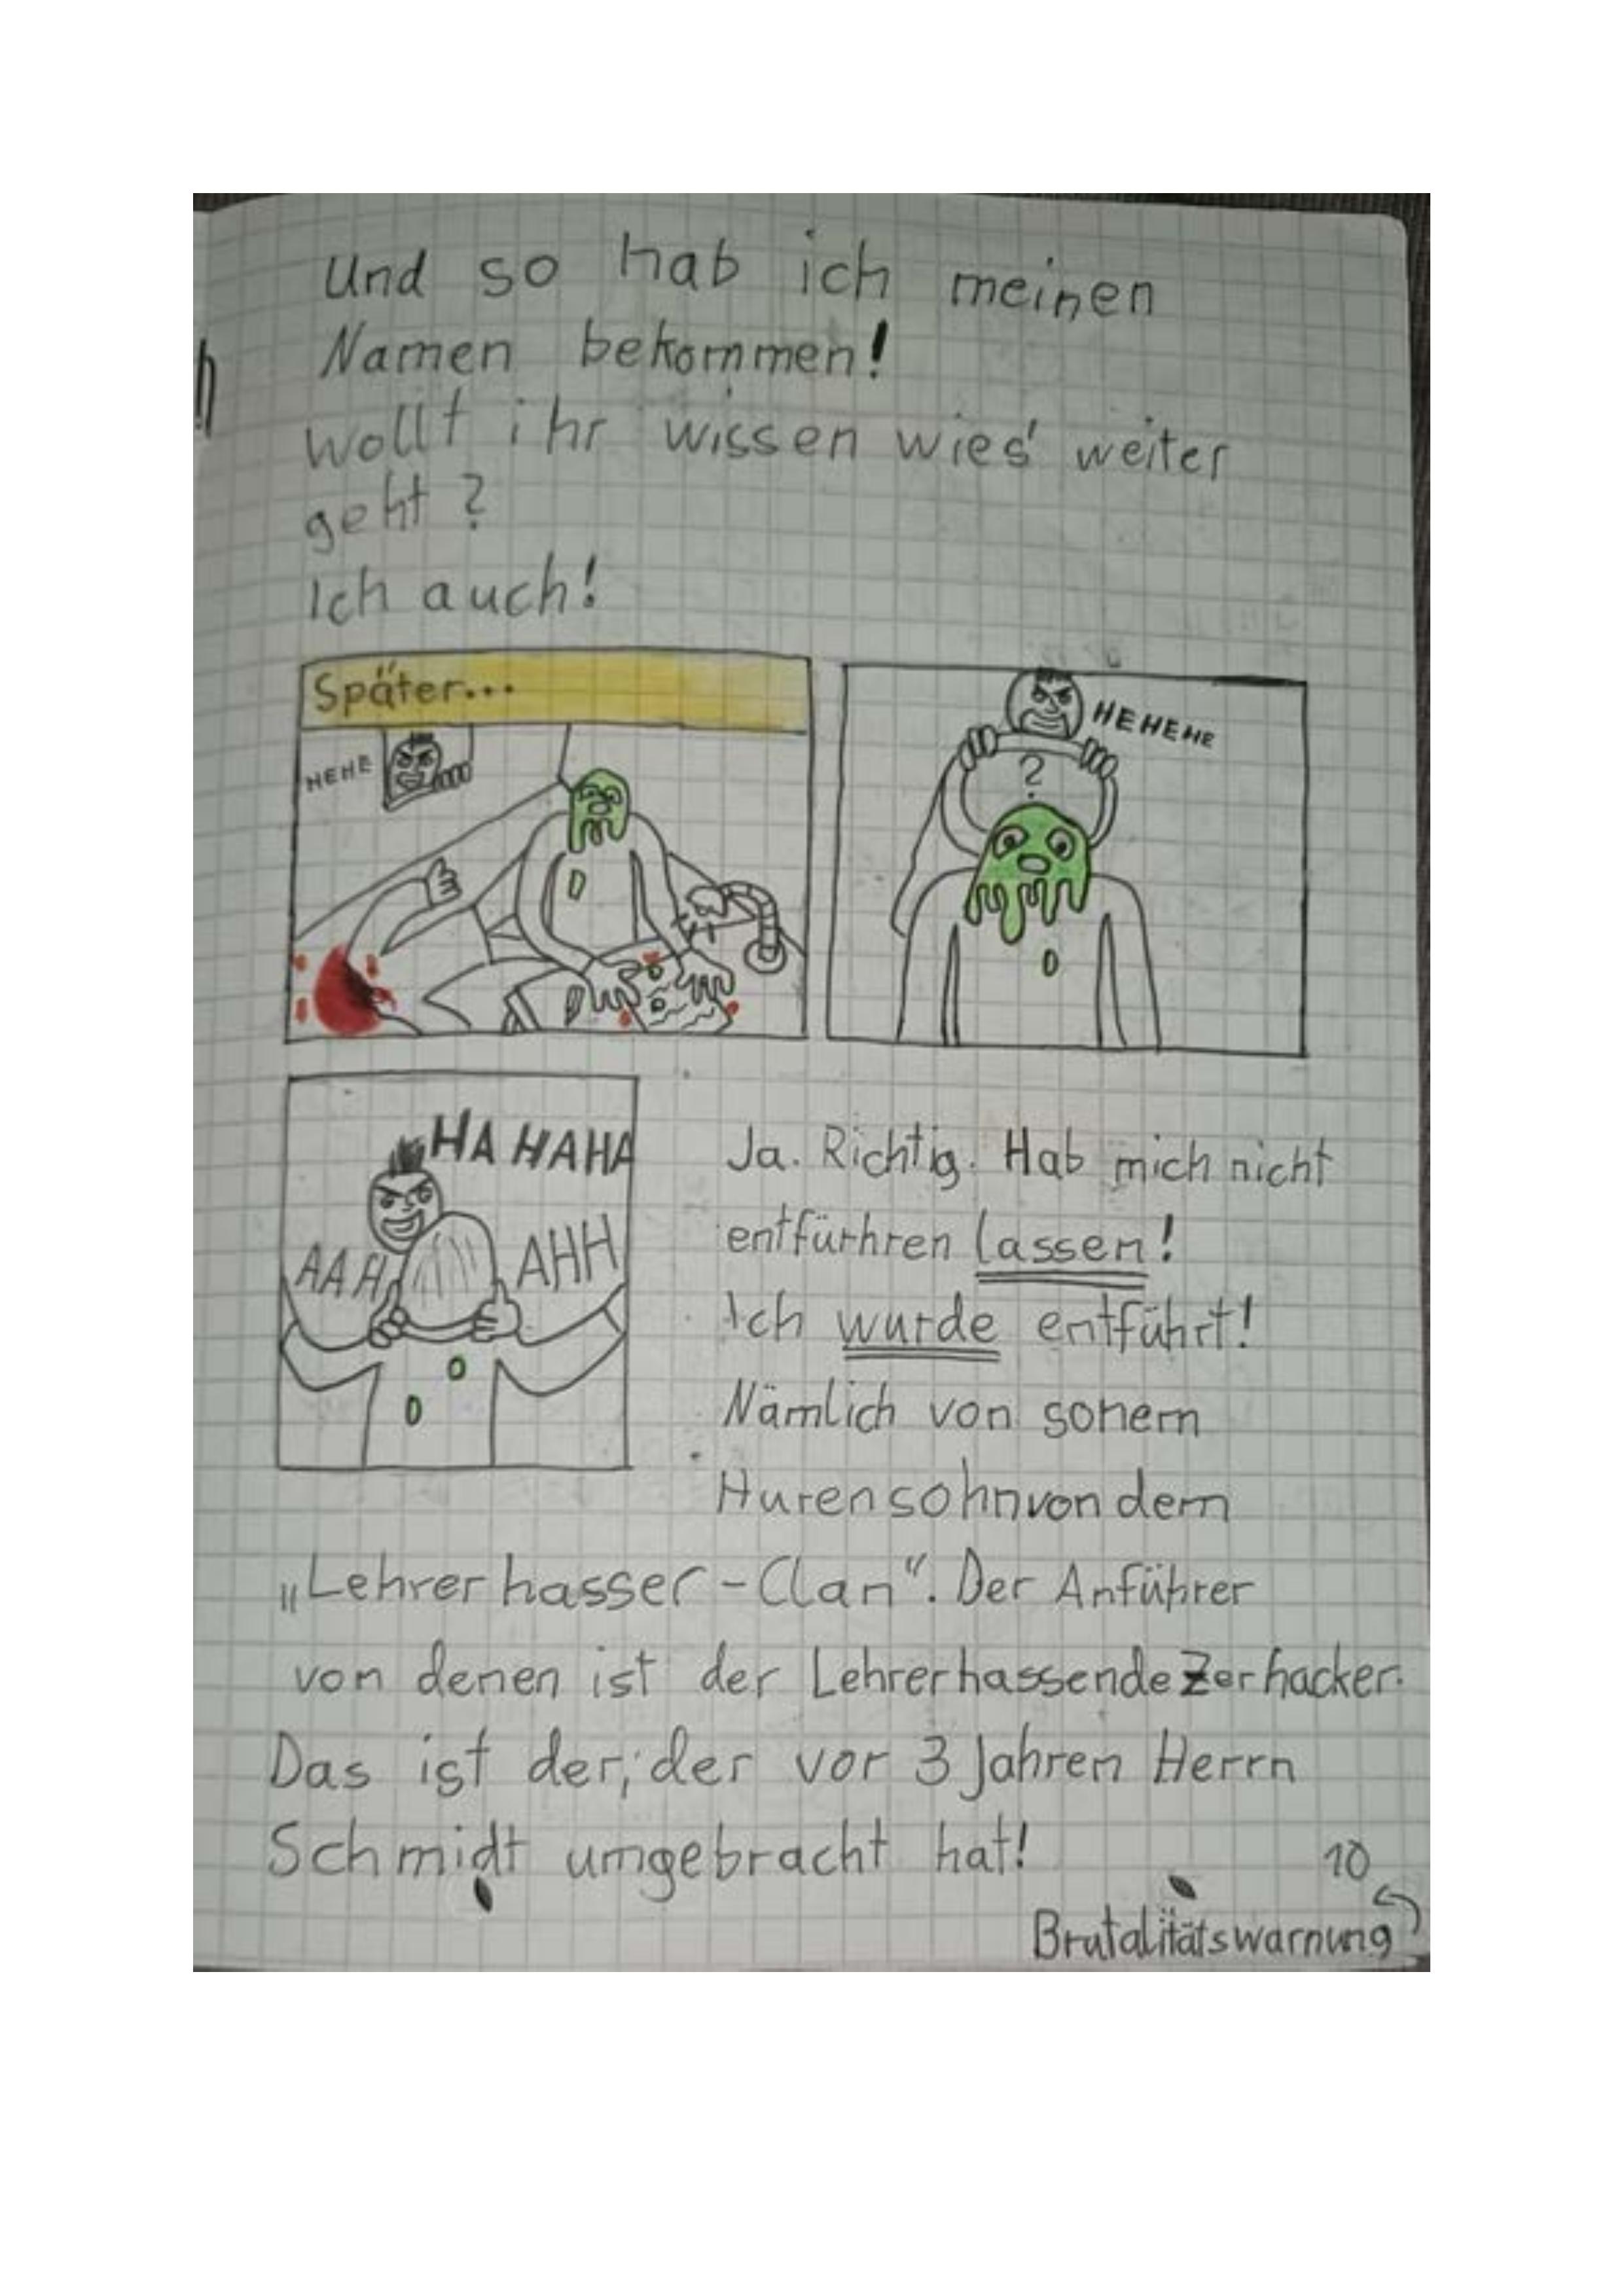 Und so hab ich meinen
Namen bekommen!
Wollt ihr wissen wies' weiter
geht?
Ich auch!
Später...
HEHE
?
HEHEHE
HA HAHA
AAH
AHH
Ja. Richtig. Hab mich nicht
entfürhren lassen!
Ich wurde entführt!
Nämlich von sonem
Hurensohn von dem
„Lehrerhasser-Clan“. Der Anführer
von denen ist der Lehrerhassende Zerhacker.
Das ist der, der vor 3 Jahren Herrn
Schmidt umgebracht hat!
10
Brutalitätswarnung